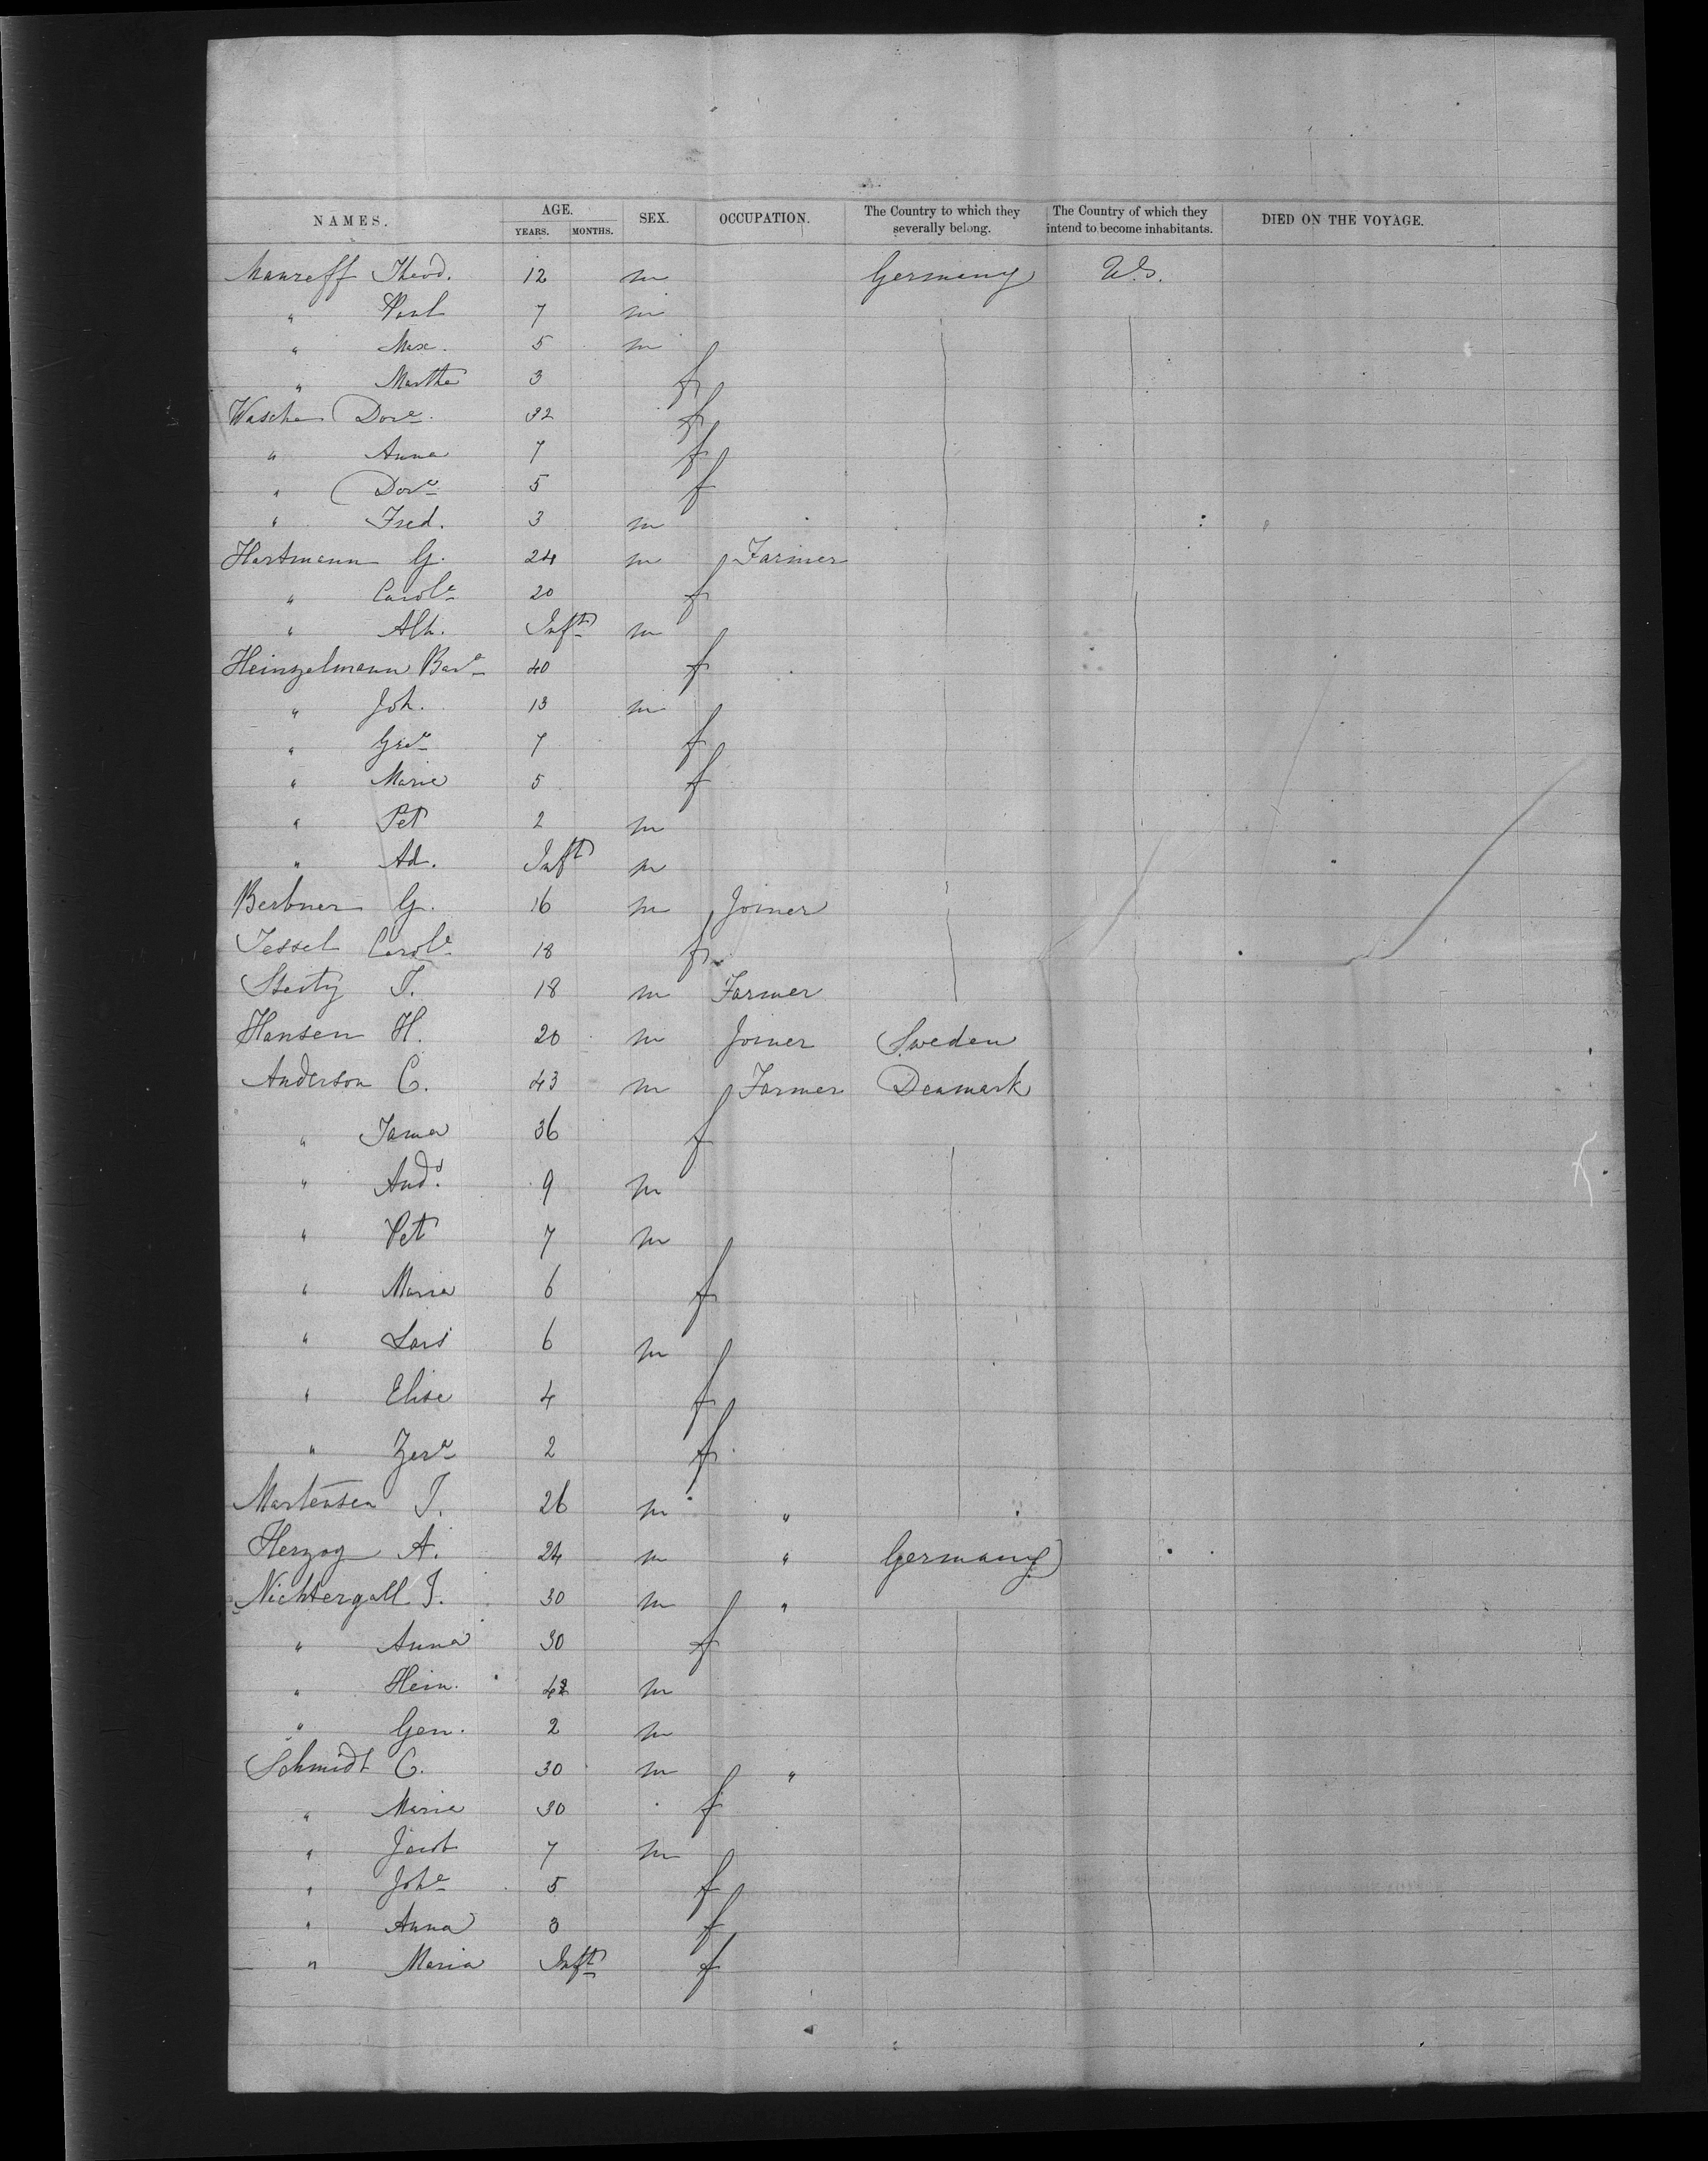 NAMES. AGE. YEARS. MONTHS. SEX. OCCUPATION. The Country to which they severally belong. The Country of which they intend to become inhabitants. DIED ON THE VOYAGE.
Manreff Theod. 12 m Germany U.S.
" Paul 7 m
" Max. 5 m
" Martha 3 f
Wascher Dore. 32 f
" Anna 7 f
" Dore 5 f
" Fred. 3 m
Hartmann G. 24 m Farmer
" Carole 20 f
" Alb. Inft m
Heinzelmann Bare 40 f
" Joh. 13 m
" Gre 7 f
" Marie 5 f
" Pet 2 m
" Ad. Inft m
Berbner G. 16 m Joiner
Tessel Carole 18 f
J. 18 m Farmer
Hansen H. 20 m Joiner Sweden
Anderson C. 43 m Farmer Denmark
" Jama 36 f
" Andr. 9 m
" Pet 7 m
" Maria 6 f
" Lars 6 m
" Elise 4 f
" 2 f
Martensen J. 26 m "
Herzog A. 24 m " Germany
Nichtergall J. 30 m "
" Anna 30 f
" Hein. m
" Gen. 2 m
Schmidt C. 30 m "
" Marie 30 f
" Jacob 7 m
" Johe 5 f
" Anna 3 f
" Maria Inft f